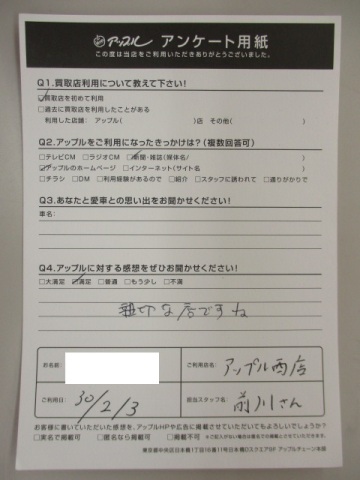 アップル アンケート用紙
この度は当店をご利用いただきありがとうございました。
Q1.買取店利用について教えて下さい!
☑買取店を初めて利用
□過去に買取店を利用したことがある
利用した店舗: アップル( )店 その他( )
Q2.アップルをご利用になったきっかけは?(複数回答可)
□テレビCM □ラジオCM □新聞・雑誌(媒体名/ )
☑アップルのホームページ □インターネット(サイト名 )
□チラシ □DM □利用経験があるので □紹介 □スタッフに誘われて □通りがかりで
Q3.あなたと愛車との思い出をお聞かせください!
車名:
Q4.アップルに対する感想をぜひお聞かせください!
□大満足 ☑満足 □普通 □もう少し □不満
親切な店ですね
お名前:
ご利用店名: アップル西店
ご利用日: 30/2/3
担当スタッフ名: 前川さん
お客様に書いていただいた感想を、アップルHPや広告に掲載させていただいてもよろしいでしょうか?
□実名で掲載可 □匿名なら掲載可 □掲載不可 ※ご記入がない場合は匿名で掲載とさせていただきます。
東京都中央区日本橋1丁目16番11号日本橋Dスクエア6F アップルチェーン本部